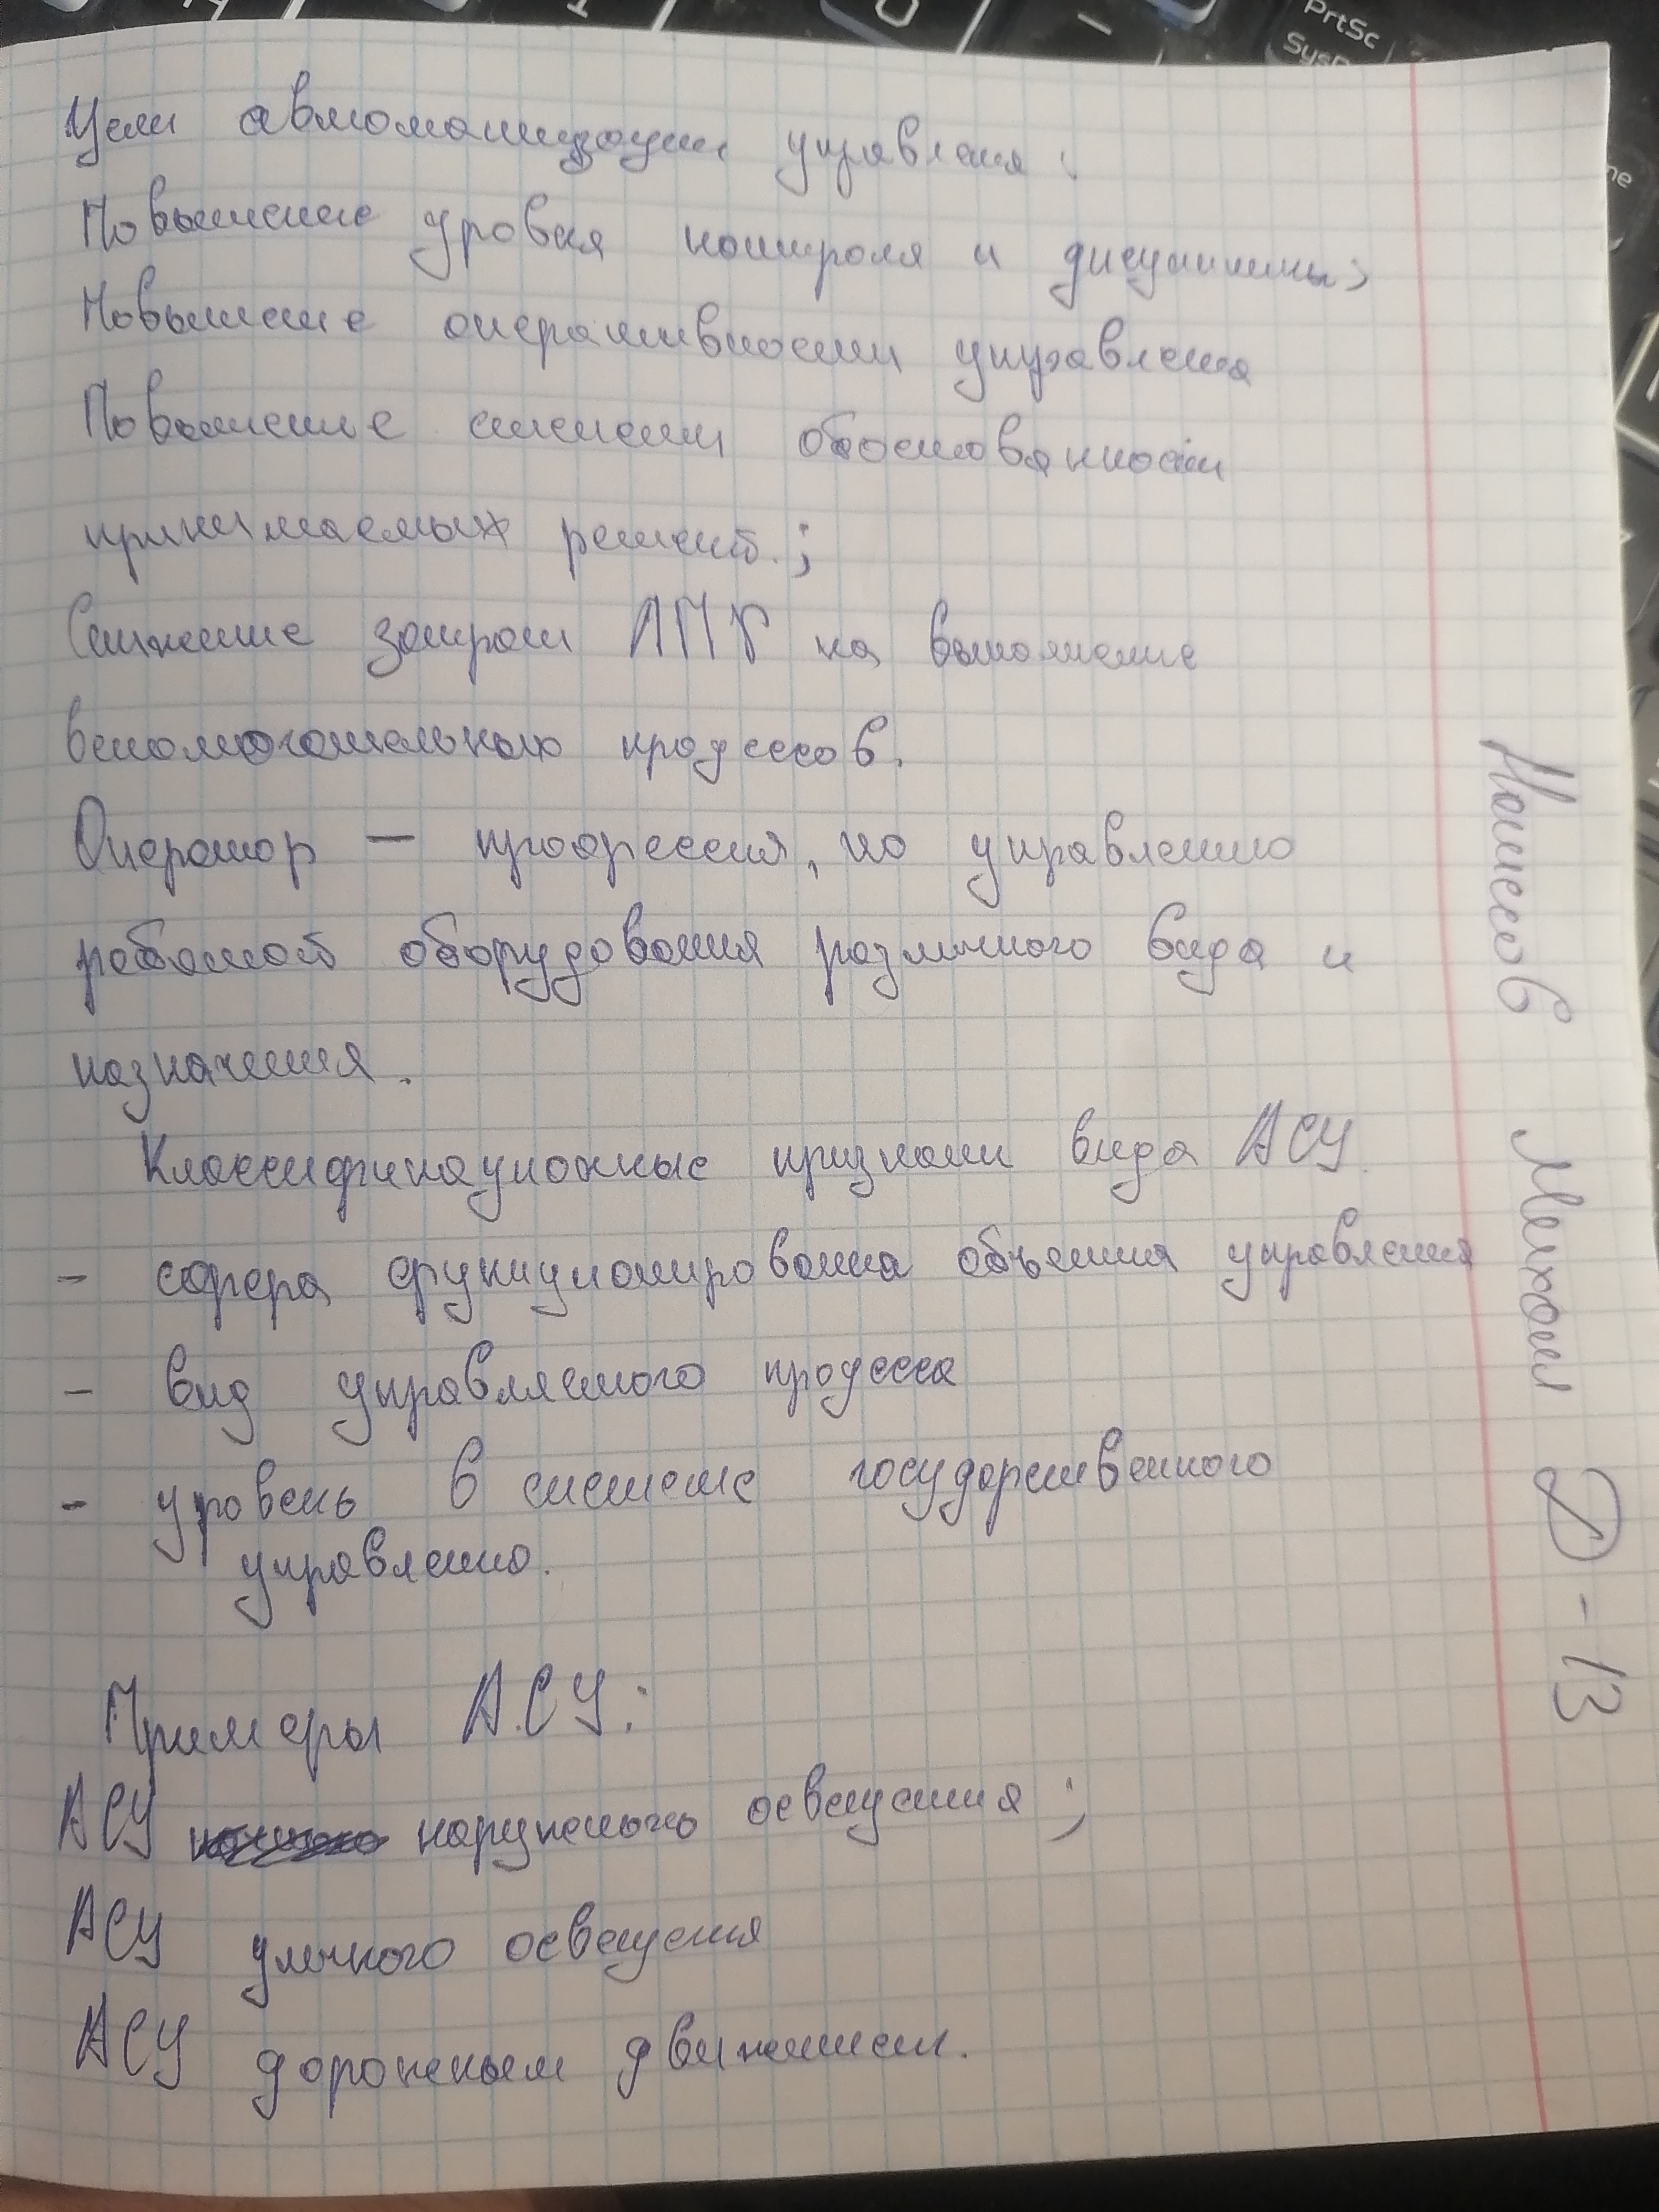 Цели автоматизации управления:
Повышение уровня контроля и дисциплины;
Повышение оперативности управления
Повышение степени обоснованности
принимаемых решений.;
Снижение затрат ЛПР на выполнение
вспомогательных процессов.
Оператор — профессия, по управлению
работой оборудования различного вида и
назначения.
Классификационные признаки вида АСУ.
- сфера функционирования объекта управления
- вид управляемого процесса
- уровень в системе государственного
управлению.
Примеры АСУ:
АСУ наружного освещения;
АСУ уличного освещения
АСУ дорожным движением.
Михаил Д-13
PrtSc